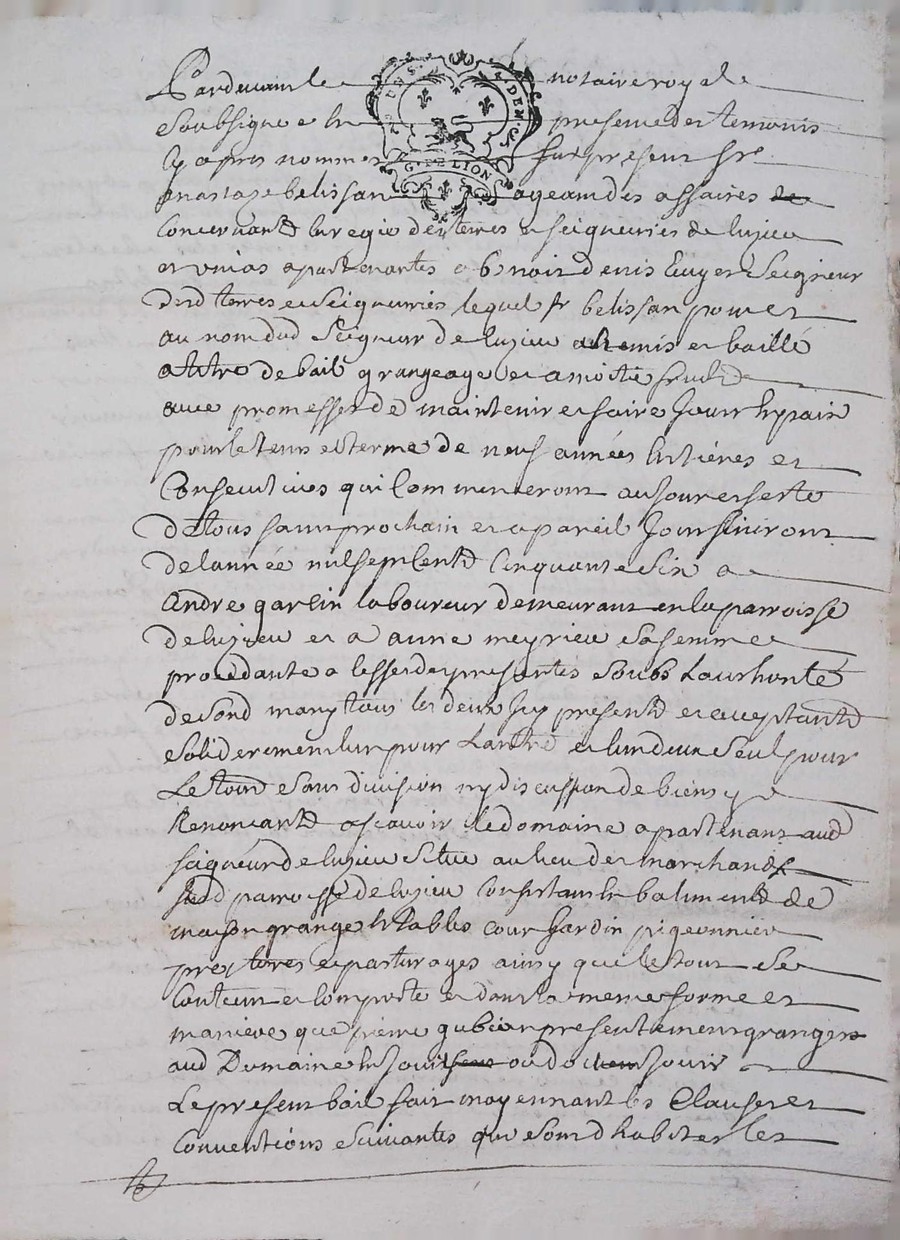 Pardevant le notaire royal
soubsigné en presence des temoins
cy apres nommes fut present sr
anastase belissan ageant des affaires de
concernant la regie des terres et seigneuries de luzieu
et unias apartenantes a benoit denis Ecuyer Seigneur
desd terres et Seigneuries lequel sr belissan pour et
au nom dud Seigneur de luzieu a remis et baillé
a titre de bail grangeage et a moitié fruits
avec promesses de maintenir et faire jouir en paix
pour le tems et terme de neuf années entières et
Consecutives qui Commenceront au jour et feste
de tous saints prochain et a pareil Jour finiront
de lannée mil sept Cent Cinquante six a
André garlin laboureur demeurant en la parroisse
de luzieu et a anne meyrieu sa femme
procedante a leffet des presentes soubs Lauthorité
de son mary tous les deux icy present et acceptants
solidairement lun pour Lautre et lun deux seul pour
Le tout sans division ny discussion de biens y
Renonçants ascavoir le domaine apartenant aud
seigneur de luzieu situé au lieu des marchands
susd parroisse de luzieu Consistant en batiments de
maison grange Estables cour Jardin pigeonnier
pres terres et pasturages ainsy que le tout se
Contient et Comporte et dans la meme forme et
maniere que pierre gubian presentement granger
aud Domaine en jouit ou doit jouir
Le present bail fait moyennant les Clauses et
Conventions suivantes qui sont d habiter les